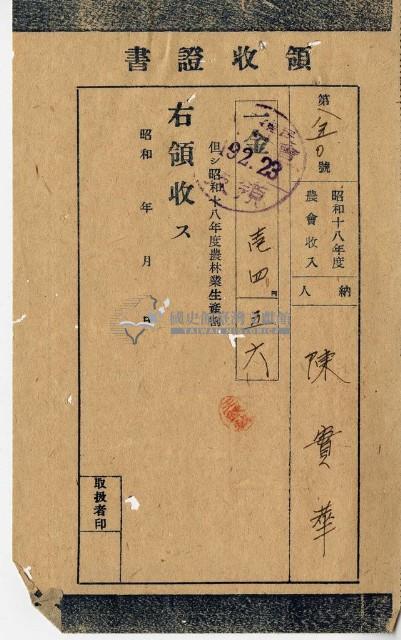 領收證書
第
號
昭和十八年度
農會收入
納
人
陳寶華
一金
壱四
円
五六
但シ昭和十八年度農林業生産
右領收ス
昭和 年 月 日
取扱者印
92.23
國史館臺灣文獻館
TAIWAN HISTORICA